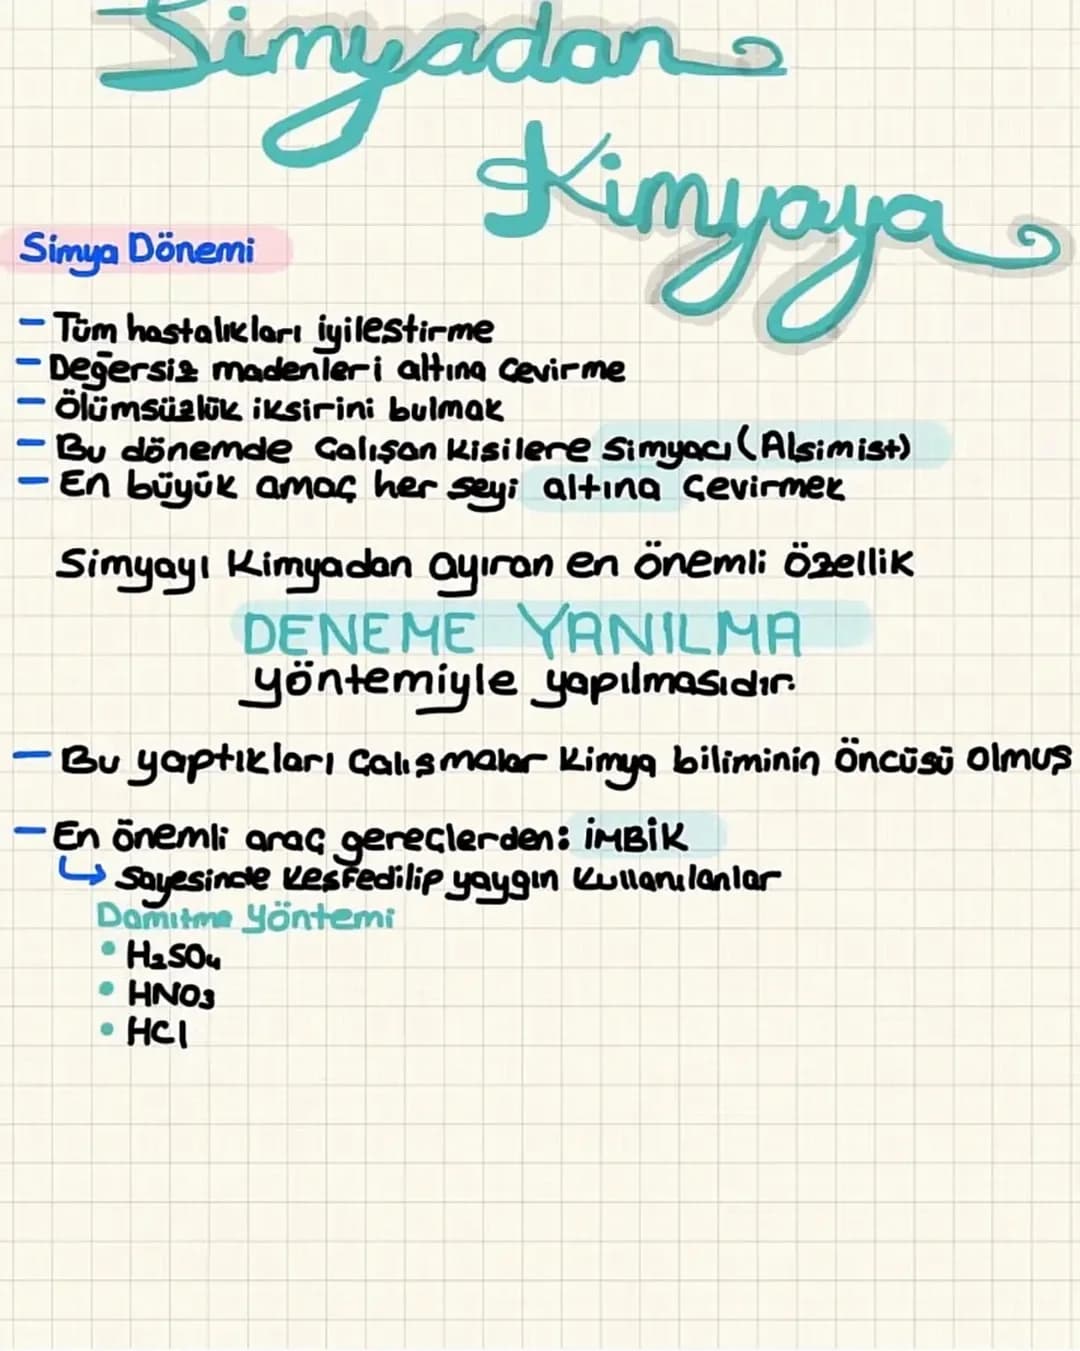 Simyadan
Kimyaya
Simya Dönemi
- Tüm hastalıkları iyilestirme
- Değersiz madenleri altına Çevirme
- Ölümsüzlük iksirini bulmak
- Bu dönemde Çalışan kisilere Simyacı (Alsimist)
- En büyük amaç her seyi altına Çevirmek
Simyayı Kimyadan ayıran en önemli özellik
DENEME YANILMA
yöntemiyle yapılmasıdır.
- Bu yaptıkları Çalışmalar Kimya biliminin Öncüsü Olmuş
- En önemli araç gereçlerden: İMBİK
↳ Sayesinde Kesfedilip yaygın Kullanılanlar
Damıtma Yöntemi
• H₂SO₄
• HNO₃
• HCl